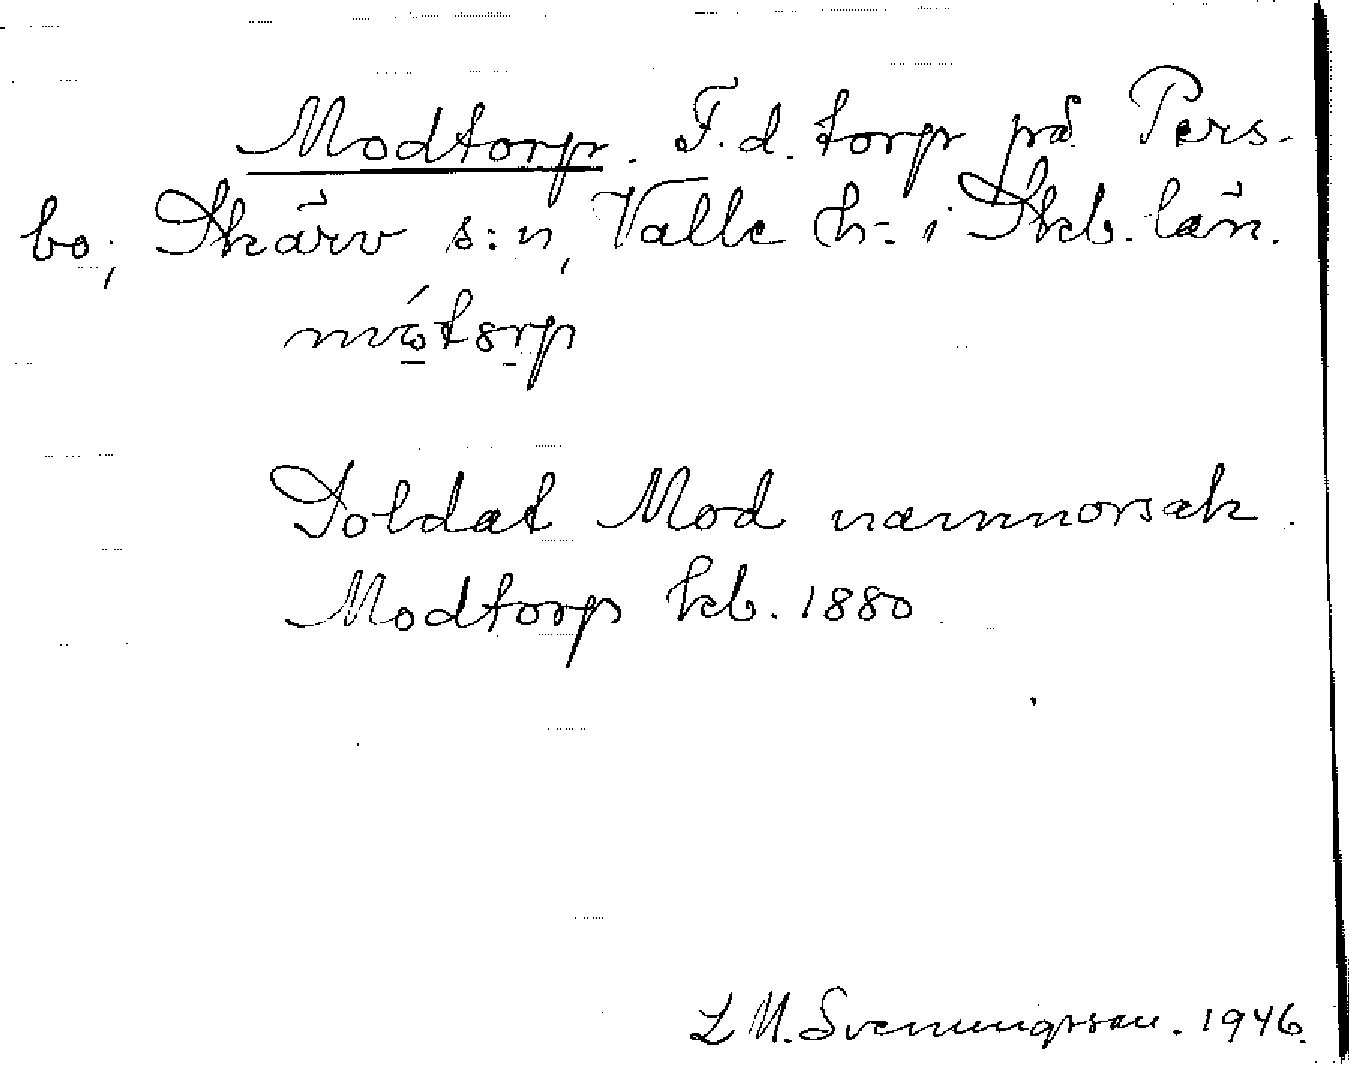 Modtorp. F.d. torp på Pers-
bo; Skärv s:n, Valle h. i Skb. län.
Soldat Mod namnorsak.
Modtorp kb. 1880.
L M. Svenungsson. 1946.